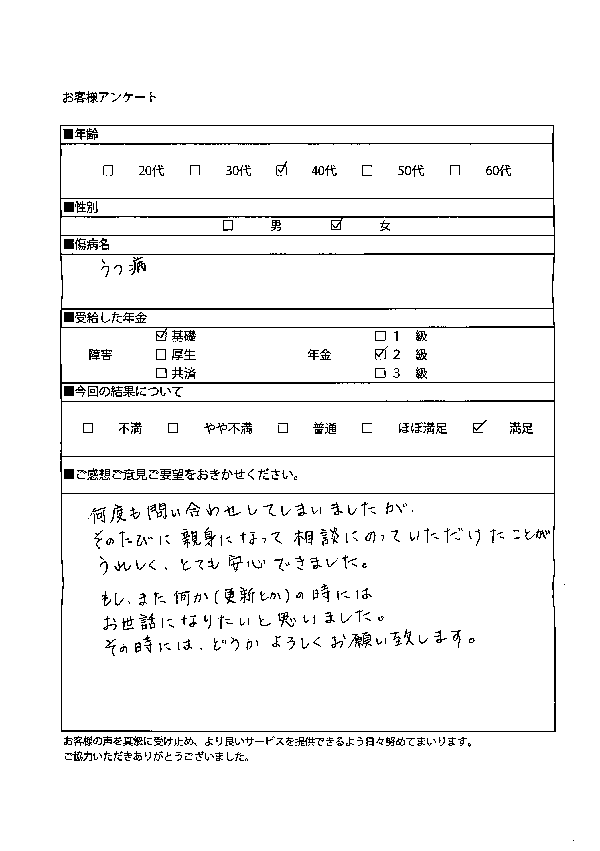 お客様アンケート
■年齢
☐ 20代 ☐ 30代 ☑ 40代 ☐ 50代 ☐ 60代
■性別
☐ 男 ☑ 女
■傷病名
うつ病
■受給した年金
☑ 基礎 ☐ 1 級
障害 ☐ 厚生 年金 ☑ 2 級
☐ 共済 ☐ 3 級
■今回の結果について
☐ 不満 ☐ やや不満 ☐ 普通 ☐ ほぼ満足 ☑ 満足
■ご感想ご意見ご要望をおきかせください。
何度も問い合わせしてしまいましたが、
そのたびに親身になって相談にのっていただけたことが
うれしく、とても安心できました。
もし、また何か(更新とか)の時には
お世話になりたいと思いました。
その時には、どうかよろしくお願い致します。
お客様の声を真摯に受け止め、より良いサービスを提供できるよう日々努めてまいります。
ご協力いただきありがとうございました。